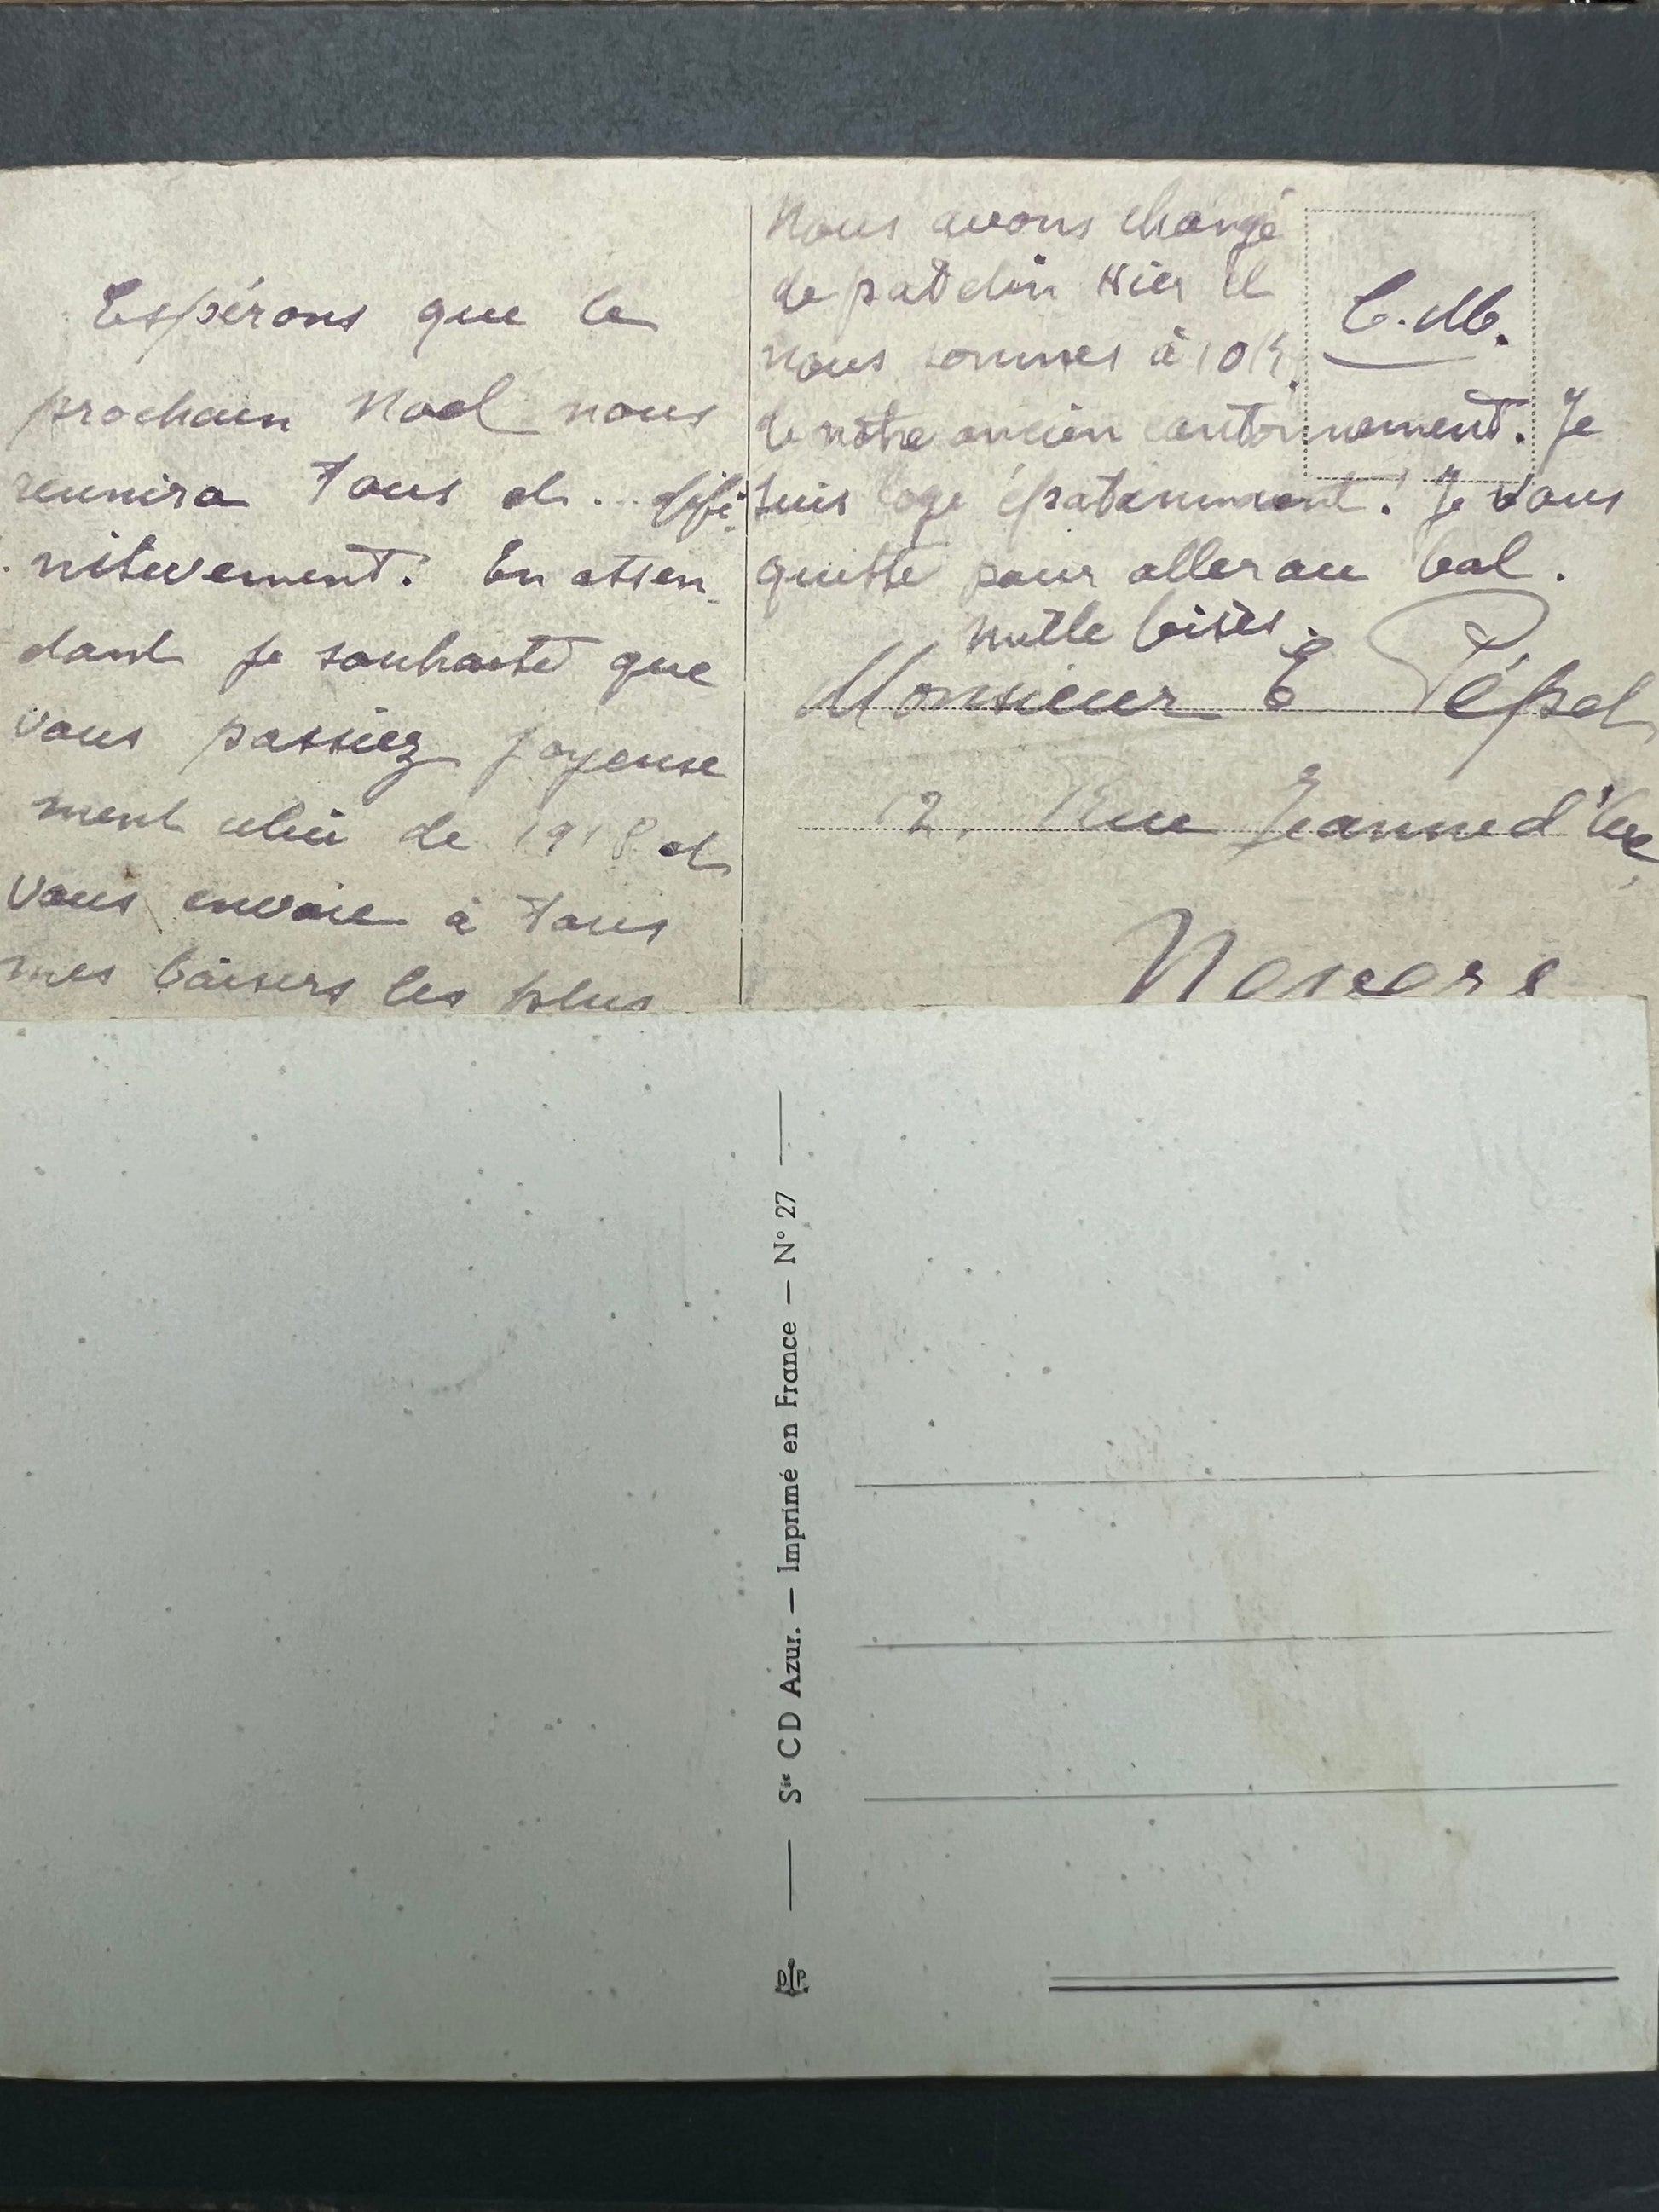 Espérons que le
prochain Noel nous
reunira tous et... défi-
nitivement. En atten-
dant je souhaite que
vous passiez joyeuse
ment celui de 1918 et
vous envoie à tous
mes baisers les plus
Nous avons changé
de patelin hier et
nous sommes à 10 K.
de notre ancien cantonnement. Je
suis logé épatamment! Je vous
quitte pour aller au bal.
mille bises.
C.M.
Monsieur E
12, Rue Jeanne d'Arc
Nevers
Sie CD Azur. — Imprimé en France — N° 27
D P